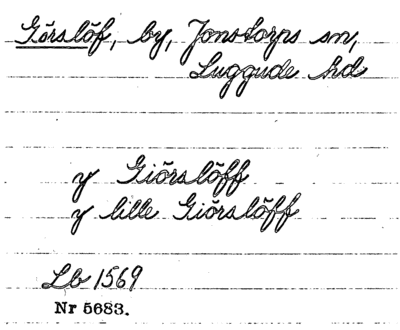 Görslöf, by, Jonstorps sn,
Luggude hd
y Giörslöff
y lille Giörslöff
Lb 1569
Nr 5683.